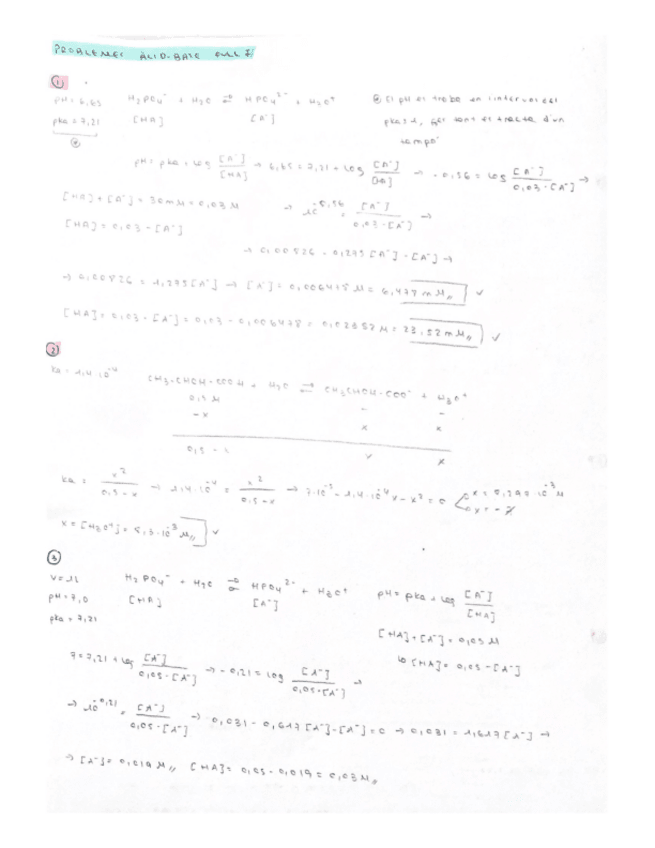 PROBLEMES ÀCID-BASE FULL 7
①
pH = 6,65 H₂PO₄⁻ + H₂O ⇌ HPO₄²⁻ + H₃O⁺ ⊛ El pH es troba en l'interval del
pka = 7,21 [HA] [A⁻] pka ± 1, per tant es tracta d'un
⊛ tampó
pH = pka + log [A⁻]/[HA] → 6,65 = 7,21 + log [A⁻]/[HA] → -0,56 = log [A⁻]/0,03-[A⁻] →
[HA]+[A⁻] = 30mM = 0,03 M → 10^-0,56 = [A⁻]/0,03-[A⁻] →
[HA] = 0,03 - [A⁻]
→ 0,00826 - 0,275[A⁻] = [A⁻] →
→ 0,00826 = 1,275[A⁻] → [A⁻] = 0,006478 M = 6,478 mM// ✓
[HA] = 0,03 - [A⁻] = 0,03 - 0,006478 = 0,02352 M = 23,52 mM// ✓
②
ka = 1,4·10⁻⁴ CH₃-CHOH-COOH + H₂O ⇌ CH₃CHOH-COO⁻ + H₃O⁺
0,5 M - -
-x x x
0,5 - x x x
ka = x²/0,5-x → 1,4·10⁻⁴ = x²/0,5-x → 7·10⁻⁵ - 1,4·10⁻⁴x - x² = 0 x = 8,290·10⁻³ M
x = -
x = [H₃O⁺] = 8,3·10⁻³ M// ✓
③
V = 1L H₂PO₄⁻ + H₂O ⇌ HPO₄²⁻ + H₃O⁺ pH = pka + log [A⁻]/[HA]
pH = 7,0 [HA] [A⁻]
pka = 7,21
[HA]+[A⁻] = 0,05 M
↳ [HA] = 0,05 - [A⁻]
7 = 7,21 + log [A⁻]/0,05-[A⁻] → -0,21 = log [A⁻]/0,05-[A⁻] →
→ 10^-0,21 = [A⁻]/0,05-[A⁻] → 0,031 - 0,617[A⁻]-[A⁻] = 0 → 0,031 = 1,617[A⁻] →
→ [A⁻] = 0,019 M// [HA] = 0,05 - 0,019 = 0,03 M//